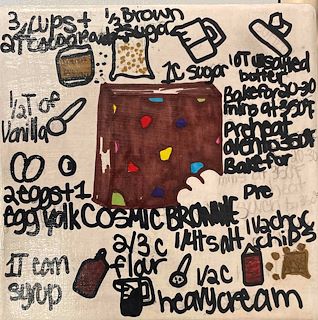 3/4 cups +
2T cocoa Powder
1/3 Brown
Sugar
1c sugar
10T unsalted
butter
Bake for 20-30
mins at 350°F
Preheat
oven to 350°F
Bake for
Pre
1/2T of
Vanilla
2 eggs + 1
egg yolk
COSMIC BROWNIE
1/4t salt
1 1/2 choc
chips
2/3 c
flour
1T corn
syrup
1/2c
heavy cream